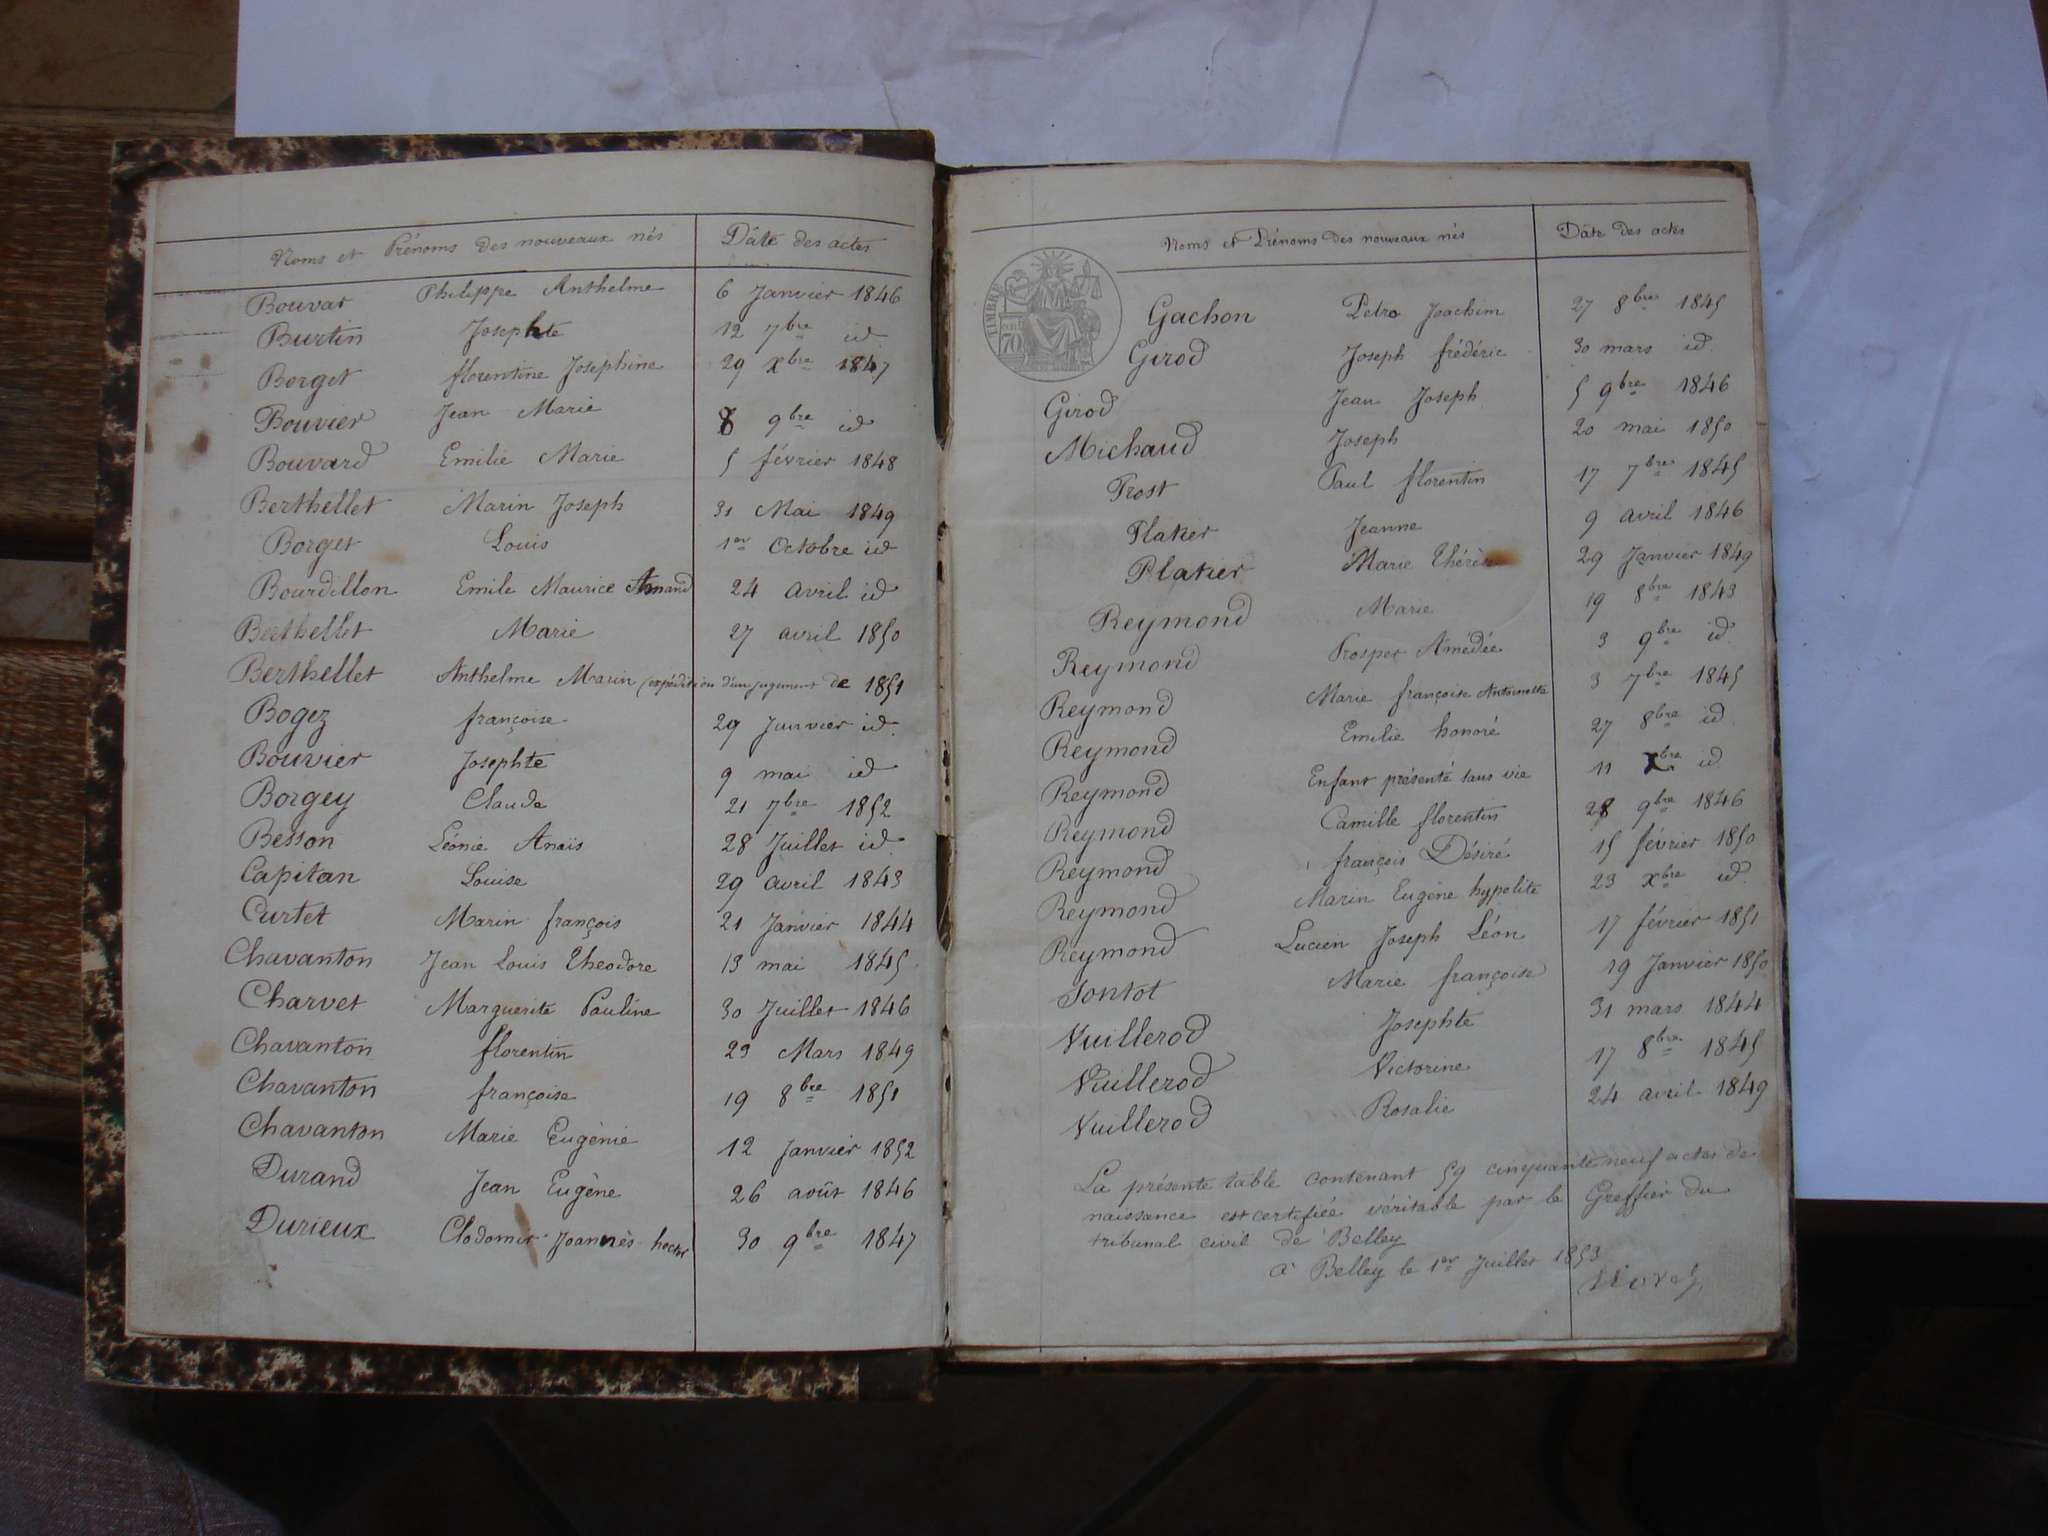 Noms et Prénoms des nouveaux nés Dâte des actes
Bouvar Philippe Anthelme 6 Janvier 1846
Burtin Josephte 12 7bre id
Borget florentine Josephine 29 Xbre 1847
Bouvier Jean Marie 8 9bre id
Bouvard Emilie Marie 5 février 1848
Berthellet Marin Joseph 31 Mai 1849
Borget Louis 1er Octobre id
Bourdillon Emile Maurice Amand 24 avril id
Berthellet Marie 27 avril 1850
Berthellet Anthelme Marin (expédition d'un jugement de 1851
Bogez françoise 29 Janvier id.
Bouvier Josephte 9 mai id
Borgey Claude 21 7bre 1852
Besson Léonie Anaïs 28 Juillet id
Capitan Louise 29 avril 1843
Curtet Marin françois 21 Janvier 1844
Chavanton Jean Louis Theodore 13 mai 1845
Charvet Marguerite Pauline 30 Juillet 1846
Chavanton florentin 23 Mars 1849
Chavanton françoise 19 8bre 1851
Chavanton Marie Eugénie 12 Janvier 1852
Durand Jean Eugène 26 août 1846
Durieux Clodomir Joannès hector 30 9bre 1847
Noms et Prénoms des nouveaux nés Dâte des actes
TIMBRE
70
Gachon Petro Joachim 27 8bre 1845
Girod Joseph frédéric 30 mars id.
Girod Jean Joseph 5 9bre 1846
Michaud Joseph 20 mai 1850
Prost Paul florentin 17 7bre 1845
Plater Jeanne 9 avril 1846
Platier Marie Thérèse 29 Janvier 1849
Reymond Marie 19 8bre 1843
Reymond Prosper Amédée 3 9bre id.
Reymond Marie françoise Antoinette 3 7bre 1845
Reymond Emilie honoré 27 8bre id
Reymond Enfant présenté sans vie 11 Xbre id
Reymond Camille florentin 28 9bre 1846
Reymond françois Désiré 15 février 1850
Reymond Marin Eugène hypolite 23 Xbre id.
Reymond Lucien Joseph Léon 17 février 1851
Sontot Marie françoise 19 Janvier 1850
Vuillerod Josephte 31 mars 1844
Vuillerod Victorine 17 8bre 1845
Vuillerod Rosalie 24 avril 1849
La présente table contenant 59 cinquante neuf actes de
naissance est certifiée véritable par le Greffier du
tribunal civil de Belley
à Belley le 1er Juillet 1853